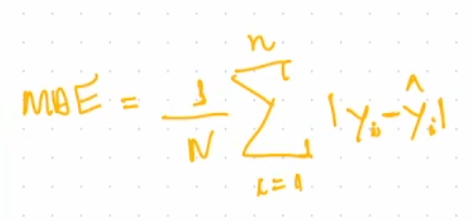 MAE = \frac{1}{N} \sum_{i=1}^{n} |y_i - \hat{y}_i|